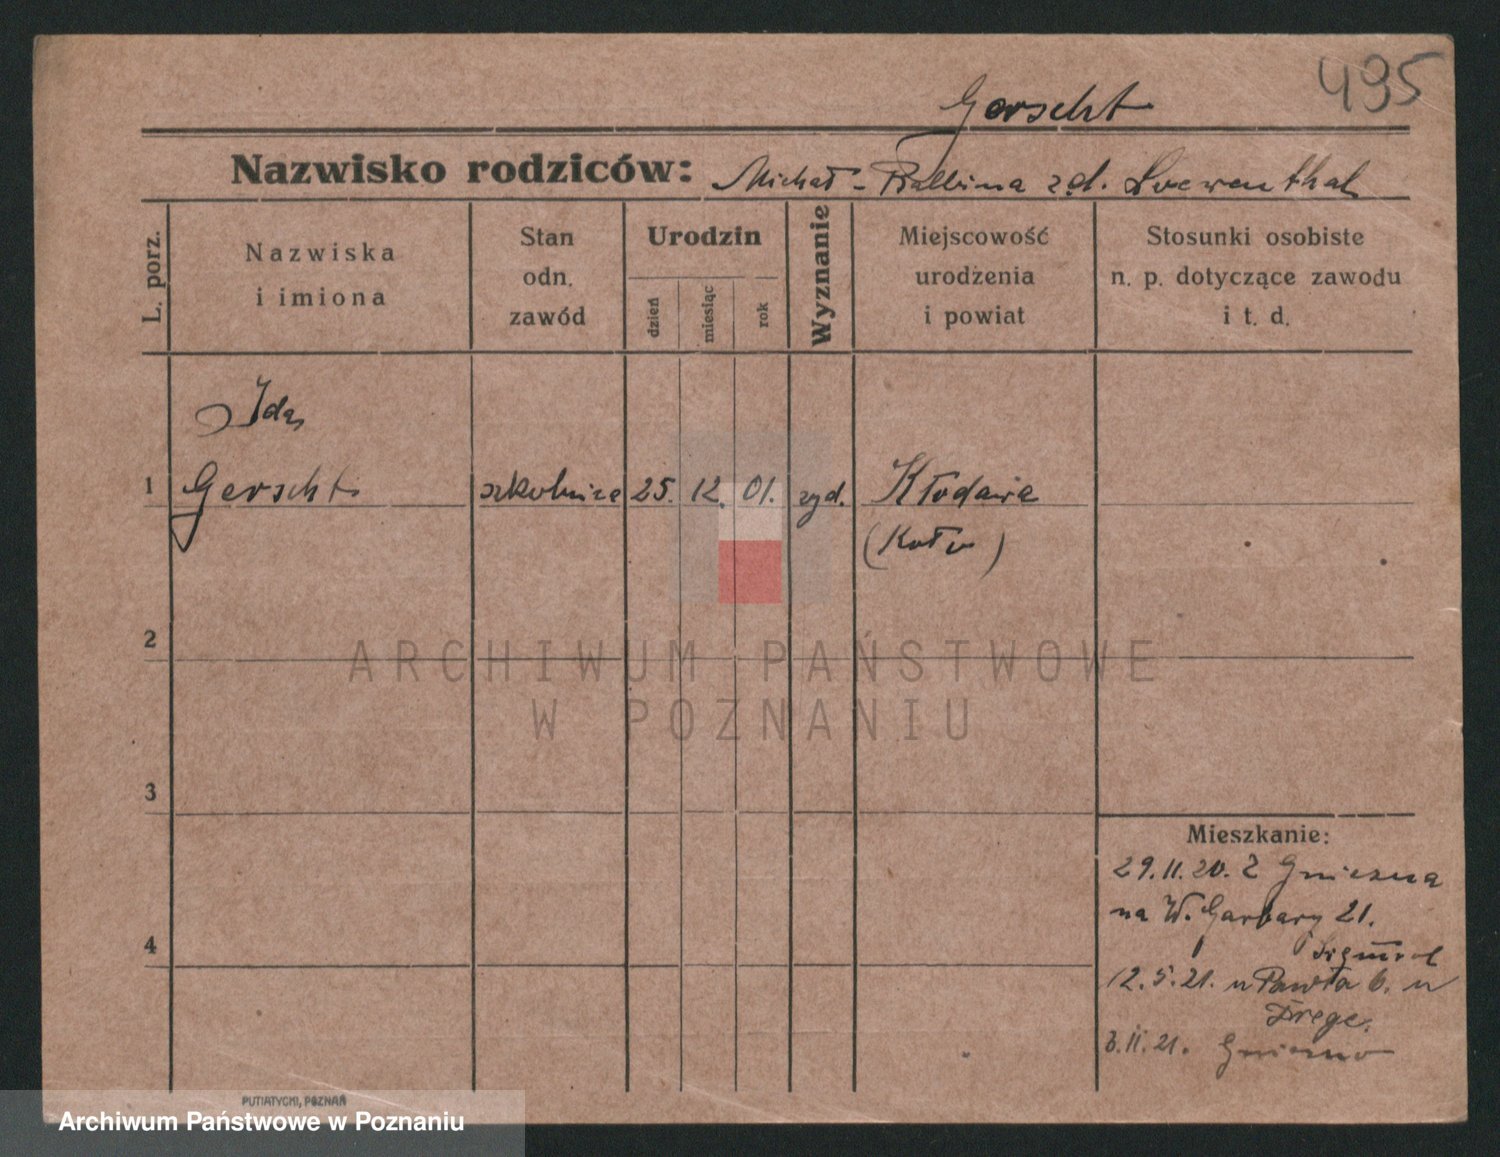 495
Gerscht
Nazwisko rodziców: Michał - Balbina zd. Loewenthal
L. porz.
Nazwiska
i imiona
Stan
odn.
zawód
Urodzin
dzień
miesiąc
rok
Wyznanie
Miejscowość
urodzenia
i powiat
Stosunki osobiste
n. p. dotyczące zawodu
i t. d.
Ida
1 Gerscht 25. 12. 01. żyd. Kłodawa
(Koło)
2
3
4
Mieszkanie:
29.11.20. Z Gniezna
na W. Garbary 21.
12.5.21. Pawła 6. u
3.11.21. Gniezno
PUTIATYCKI, POZNAŃ
ARCHIWUM PAŃSTWOWE
W POZNANIU
Archiwum Państwowe w Poznaniu